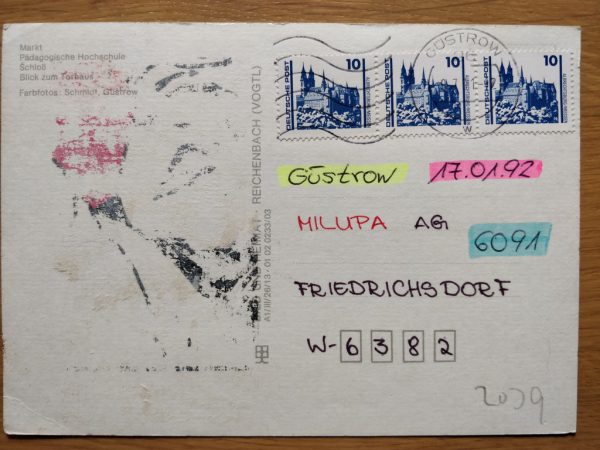 Markt
Pädagogische Hochschule
Schloß
Blick zum Torhaus
Farbfotos: Schmidt, Güstrow
REICHENBACH (VOGTL)
A1/III/26/13 · 01 02 0233/03
DEUTSCHE POST 10
DEUTSCHE POST 10
DEUTSCHE POST 10
GÜSTROW
GÜSTROW 17.01.92
MILUPA AG
6091
FRIEDRICHSDORF
W-6382
2039